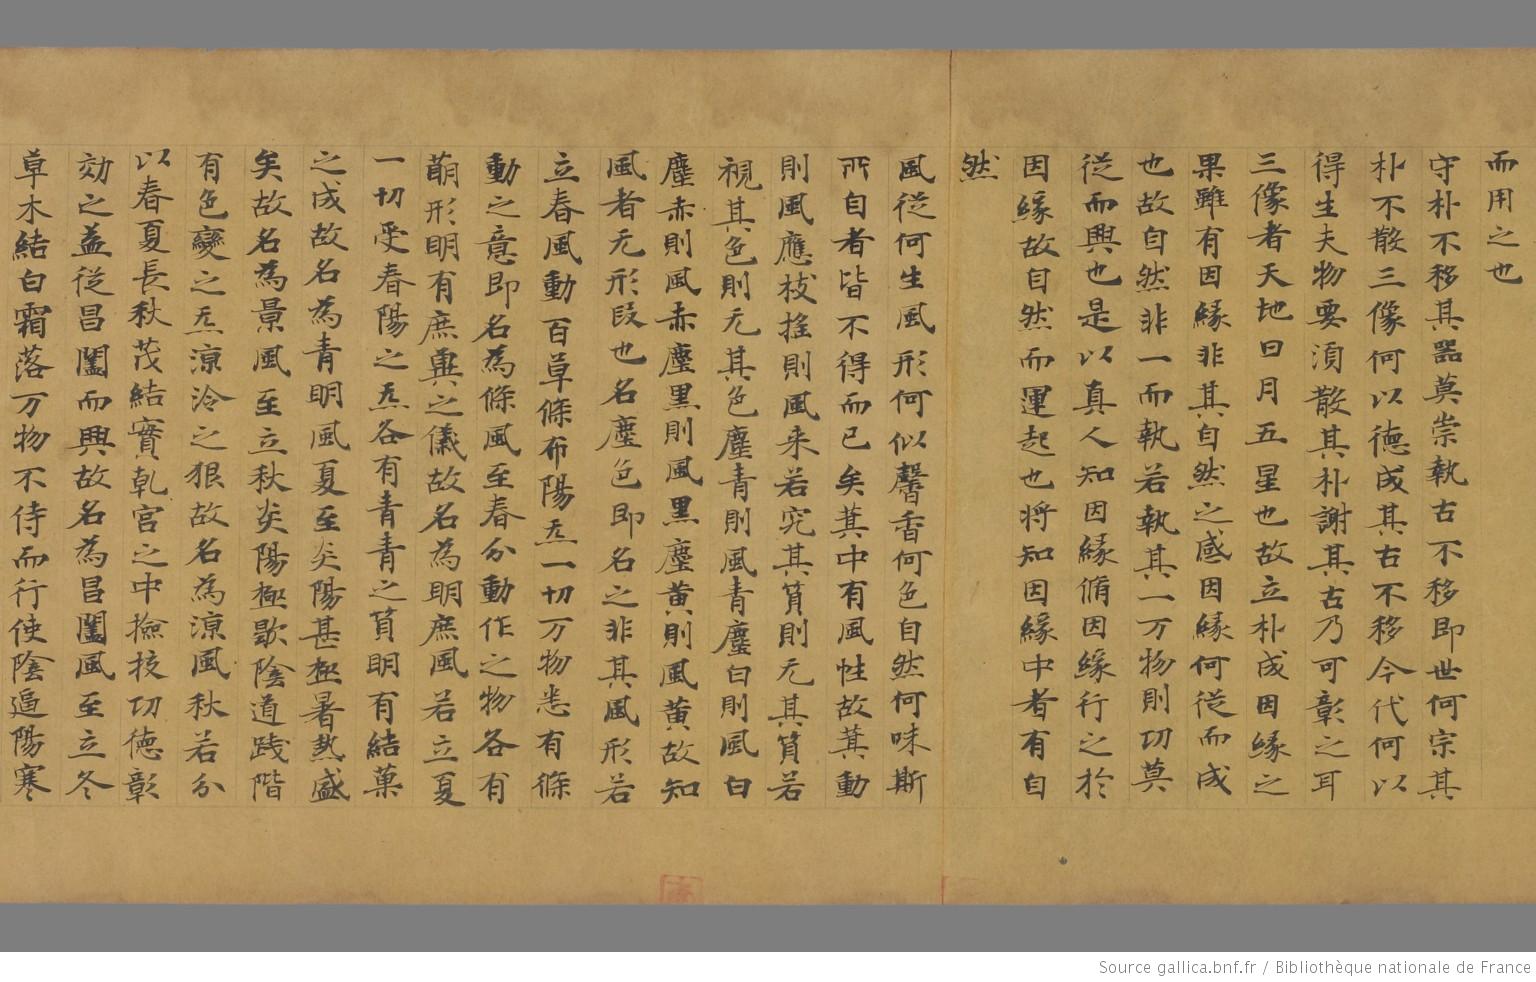 而用之也
守朴不移其器莫崇執古不移即世何宗其
朴不散三像何以德成其古不移今代何以
得生夫物要須散其朴謝其古乃可彰之耳
三像者天地日月五星也故立朴成因緣之
果雖有因緣非其自然之感因緣何從而成
也故自然非一而執若執其一万物則功莫
從而興也是以真人知因緣脩因緣行之於
因緣故自然而運起也将知因緣中者有自
然
風從何生風形何似馨香何色自然何味斯
所自者皆不得而已矣其中有風性故其動
則風應枝搖則風来若究其質則无其質若
視其色則无其色塵青則風青塵白則風白
塵赤則風赤塵黒則風黒塵黄則風黄故知
風者无形段也名塵色即名之非其風形若
立春風動百草條布陽炁一切万物悉有條
動之意即名為條風至春分動作之物各有
萠形明有庶興之儀故名為明庶風若立夏
一切受春陽之炁各有青青之質明有結菓
之成故名為青明風夏至炎陽甚極暑熱盛
矣故名為景風至立秋炎陽極歇陰道踐階
有色變之炁涼泠之狠故名為涼風秋若分
以春夏長秋茂結實乹宮之中撿技功德彰
効之盖從昌闔而興故名為昌闔風至立冬
草木結白霜落万物不侍而行使陰逼陽寒
Source gallica.bnf.fr / Bibliothèque nationale de France